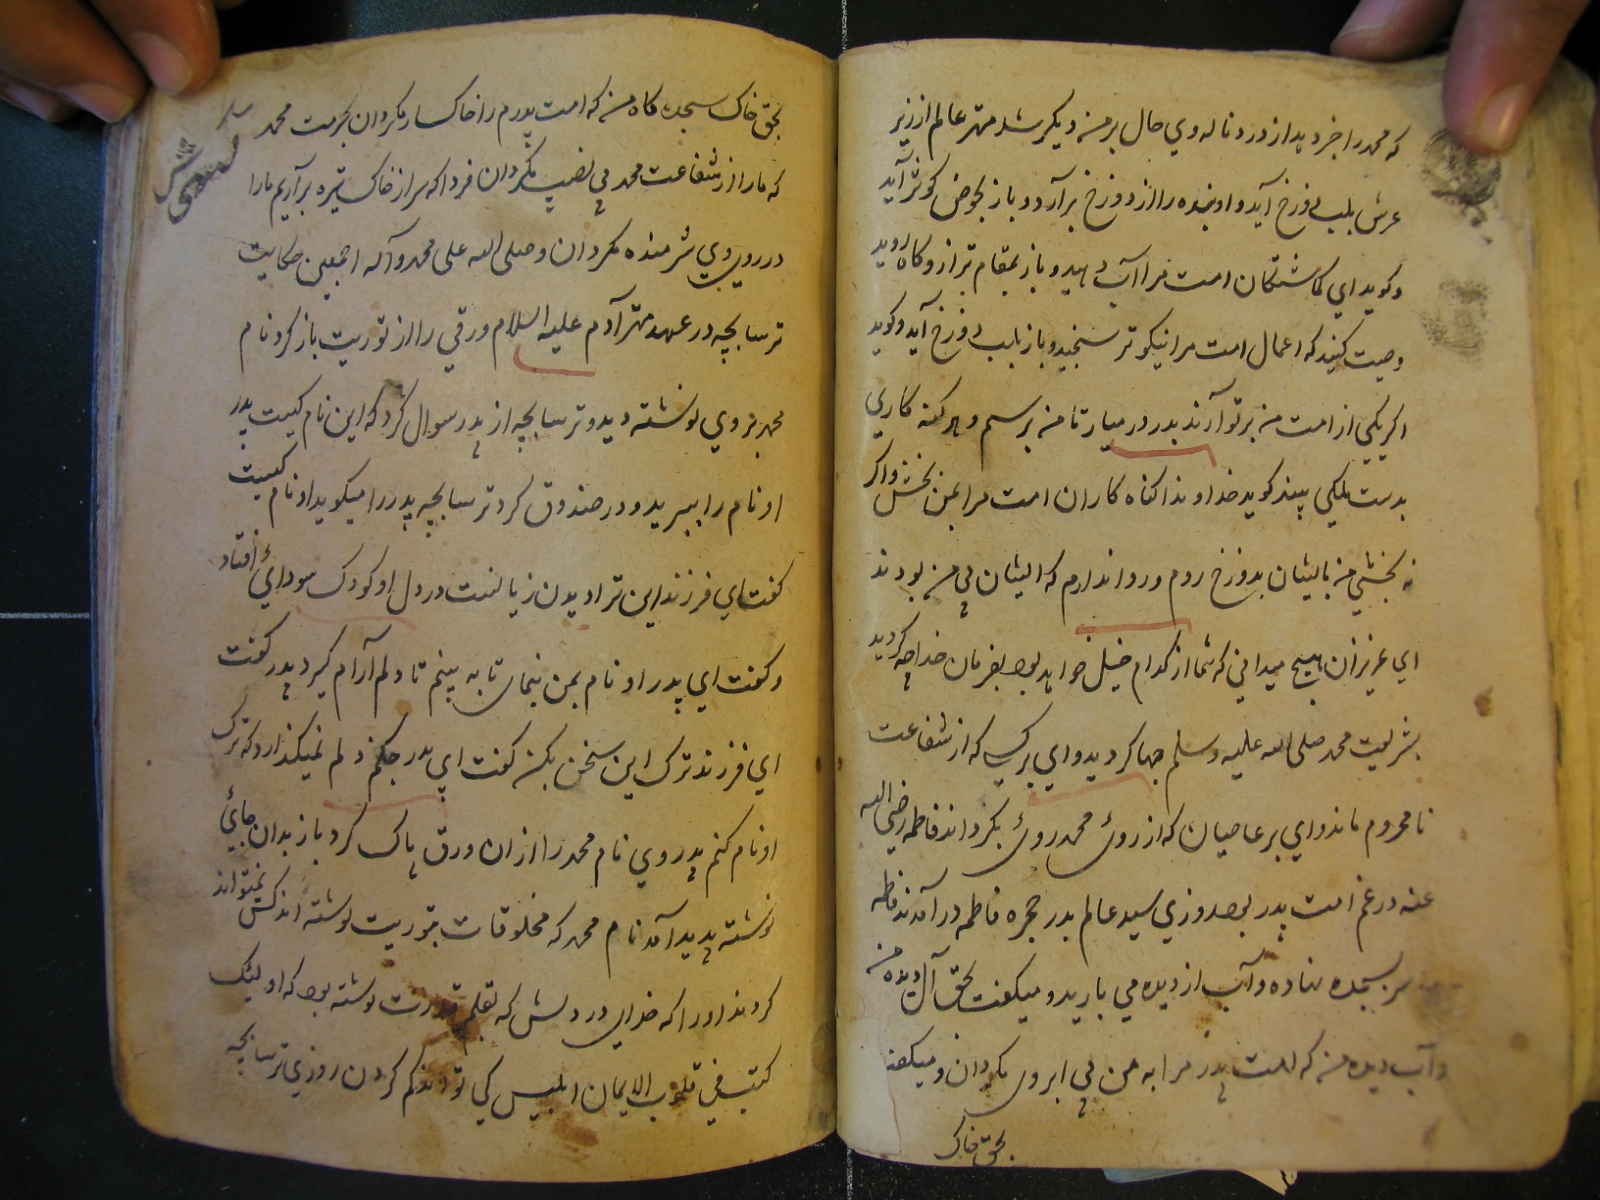 که محمد را خبر دهید از درد ناله وی حال بر من دیگر شد مهتر عالم از زیر
عرش بلب دوزخ آید و او بنده را از دوزخ برآرد و باز بحوض کوثر آید
و کوید ای کماشتکان امت مرا آب دهید و باز بمقام ترازو کاه روید
وصیت کنید که اعمال امت مرا نیکوتر سنجید و باز بلب دوزخ آید و کوید
اکر یکی از امت من بر تو آرند بدر در میار تا من برسم و هر کنه کاری
بدست ملکی بیند کوید خداوندا کناه کاران امت مرا بمن بخش و اکر
نه بخشی من با ایشان بدوزخ روم و روا ندارم که ایشان بی من بودند
ای عزیزان هیچ میدانی که شما از کدام خیل خواهید بود بفرمان خدا چه کردید
بشریعت محمد صلی الله علیه وسلم چها کردید و ای بر کسی که از شفاعت
نا محروم ماند وای بر عاصیان که از روی محمد روی بکرداند فاطمه رضی الله
عنه در غم امت پدر بود روزی سید عالم بدر حجره فاطمه در آمدند فاطمه
سر بسجده نهاده و آب از دیده می بارید و میکفت بحق آل دیده من
و آب دیده من که امت پدر مرا به من بی ابروی مکردان و میکفت
بحق خاک
بحق خاک سجده کاه من که امت پدرم را خاکسار مکردان بحرمت محمد
که ما را از شفاعت محمد بی نصیب مکردان فردا که سر از خاک تیره برآریم ما را
در روی وی شرمنده مکردان و صلی الله علی محمد و آله اجمعین حکایت
ترسا بچه در عهد مهتر آدم علیه السلام ورقی را از توریت باز کرد نام
محمد بر وی نوشته دید و ترسا بچه از پدر سوال کرد که این نام کیست پدر
او نام را ببرید و در صندوق کرد ترسا بچه پدر را میکوید او نام کیست
کفت ای فرزند این ترا دیدن زیانست در دل او کودک سودائی افتاد
و کفت ای پدر او نام بمن بنمای تا به بینم تا دلم آرام کیرد پدر کفت
ای فرزند ترک این سخن بکن کفت ای پدر چکنم دلم نمیکذارد که ترک
او نام کنم پدر وی نام محمد را از ان ورق پاک کرد باز بدان جائی
نوشته پدید آمد نام محمد که مخلوقات بتوریت نوشته اند کس نمیتواند
کردند او را که خدای در دلش که بقلم قدرت نوشته بود که اولئک
کتب فی قلوبهم الایمان ابلیس کی تواند کم کردن روزی ترسا بچه